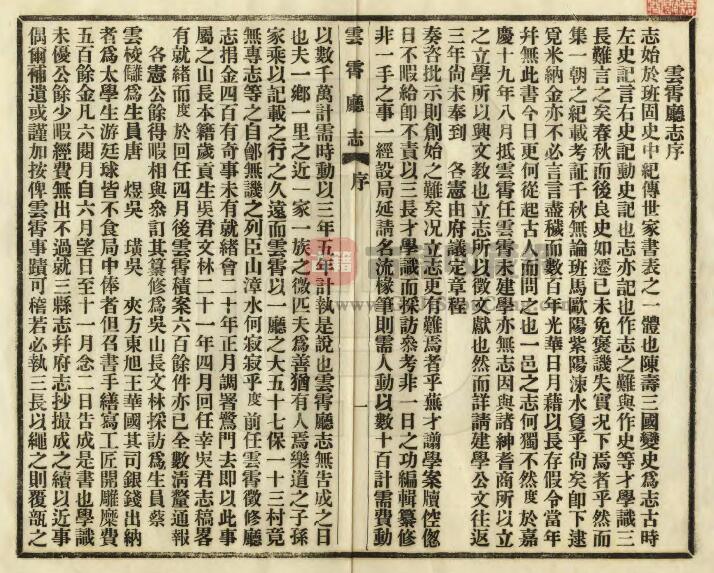 雲霄廳志序
志始於班固史中紀傳世家書表之一體也陳壽三國變史爲志古時
左史記言右史記動史記也志亦記也作志之難與作史等才學識三
長難言之矣春秋而後良史如遷已未免褒譏失實况下焉者乎然而
集一朝之紀載考証千秋無論班馬歐陽紫陽涑水敻乎尙矣卽下逮
覓米納金亦不必言言盡穢而數百年光華日月藉以長存假令當年
幷無此書今日更何從起古人而問之也一邑之志何獨不然度於嘉
慶十九年八月抵雲霄任雲霄未建學亦無志因與諸紳耆商所以立
之立學所以興文敎也立志所以徵文獻也然而詳請建學公文往返
三年尙未奉到 各憲由府議定章程
奏咨批示則創始之難矣况立志更有難焉者乎蕪才謭學案牘倥偬
日不暇給卽不責以三長才學識而採訪參考非一日之功編輯纂修
非一手之事一經設局延請名流椽筆則需人動以數十百計需費動
雲霄廳志 序 一
以數千萬計需時動以三年五年計執是說也雲霄廳志無告成之日
也夫一鄉一里之近一家一族之微匹夫爲善猶有人焉樂道之子孫
家乘以記載之行之久遠而雲霄以一廳之大五十七保一十三村竟
無專志等之自鄶無譏之列臣山漳水何寂寂乎度前任雲霄徵修廳
志捐金四百有奇事未有就緒會二十年正月調署鷺門去卽以此事
屬之山長本籍歲貢生吳君文林二十一年四月回任幸吳君志稿畧
有就緒而度於回任四月後雲霄積案六百餘件亦已全數淸釐通報
各憲公餘得暇相與叅訂其纂修爲吳山長文林採訪爲生員蔡
雲校讎爲生員唐 煜吳 璜吳 夾方東旭王華國其司銀錢出納
者爲太學生游廷球皆不食局中俸者但召書手繕寫工匠開雕糜費
五百餘金凡六閱月自六月望日至十一月念二日告成是書也學識
未優公餘少暇經費無出不過就三縣志幷府志抄撮成之續以近事
偶爾補遺或謹加按俾雲霄事蹟可稽若必執三長以繩之則覆瓿之